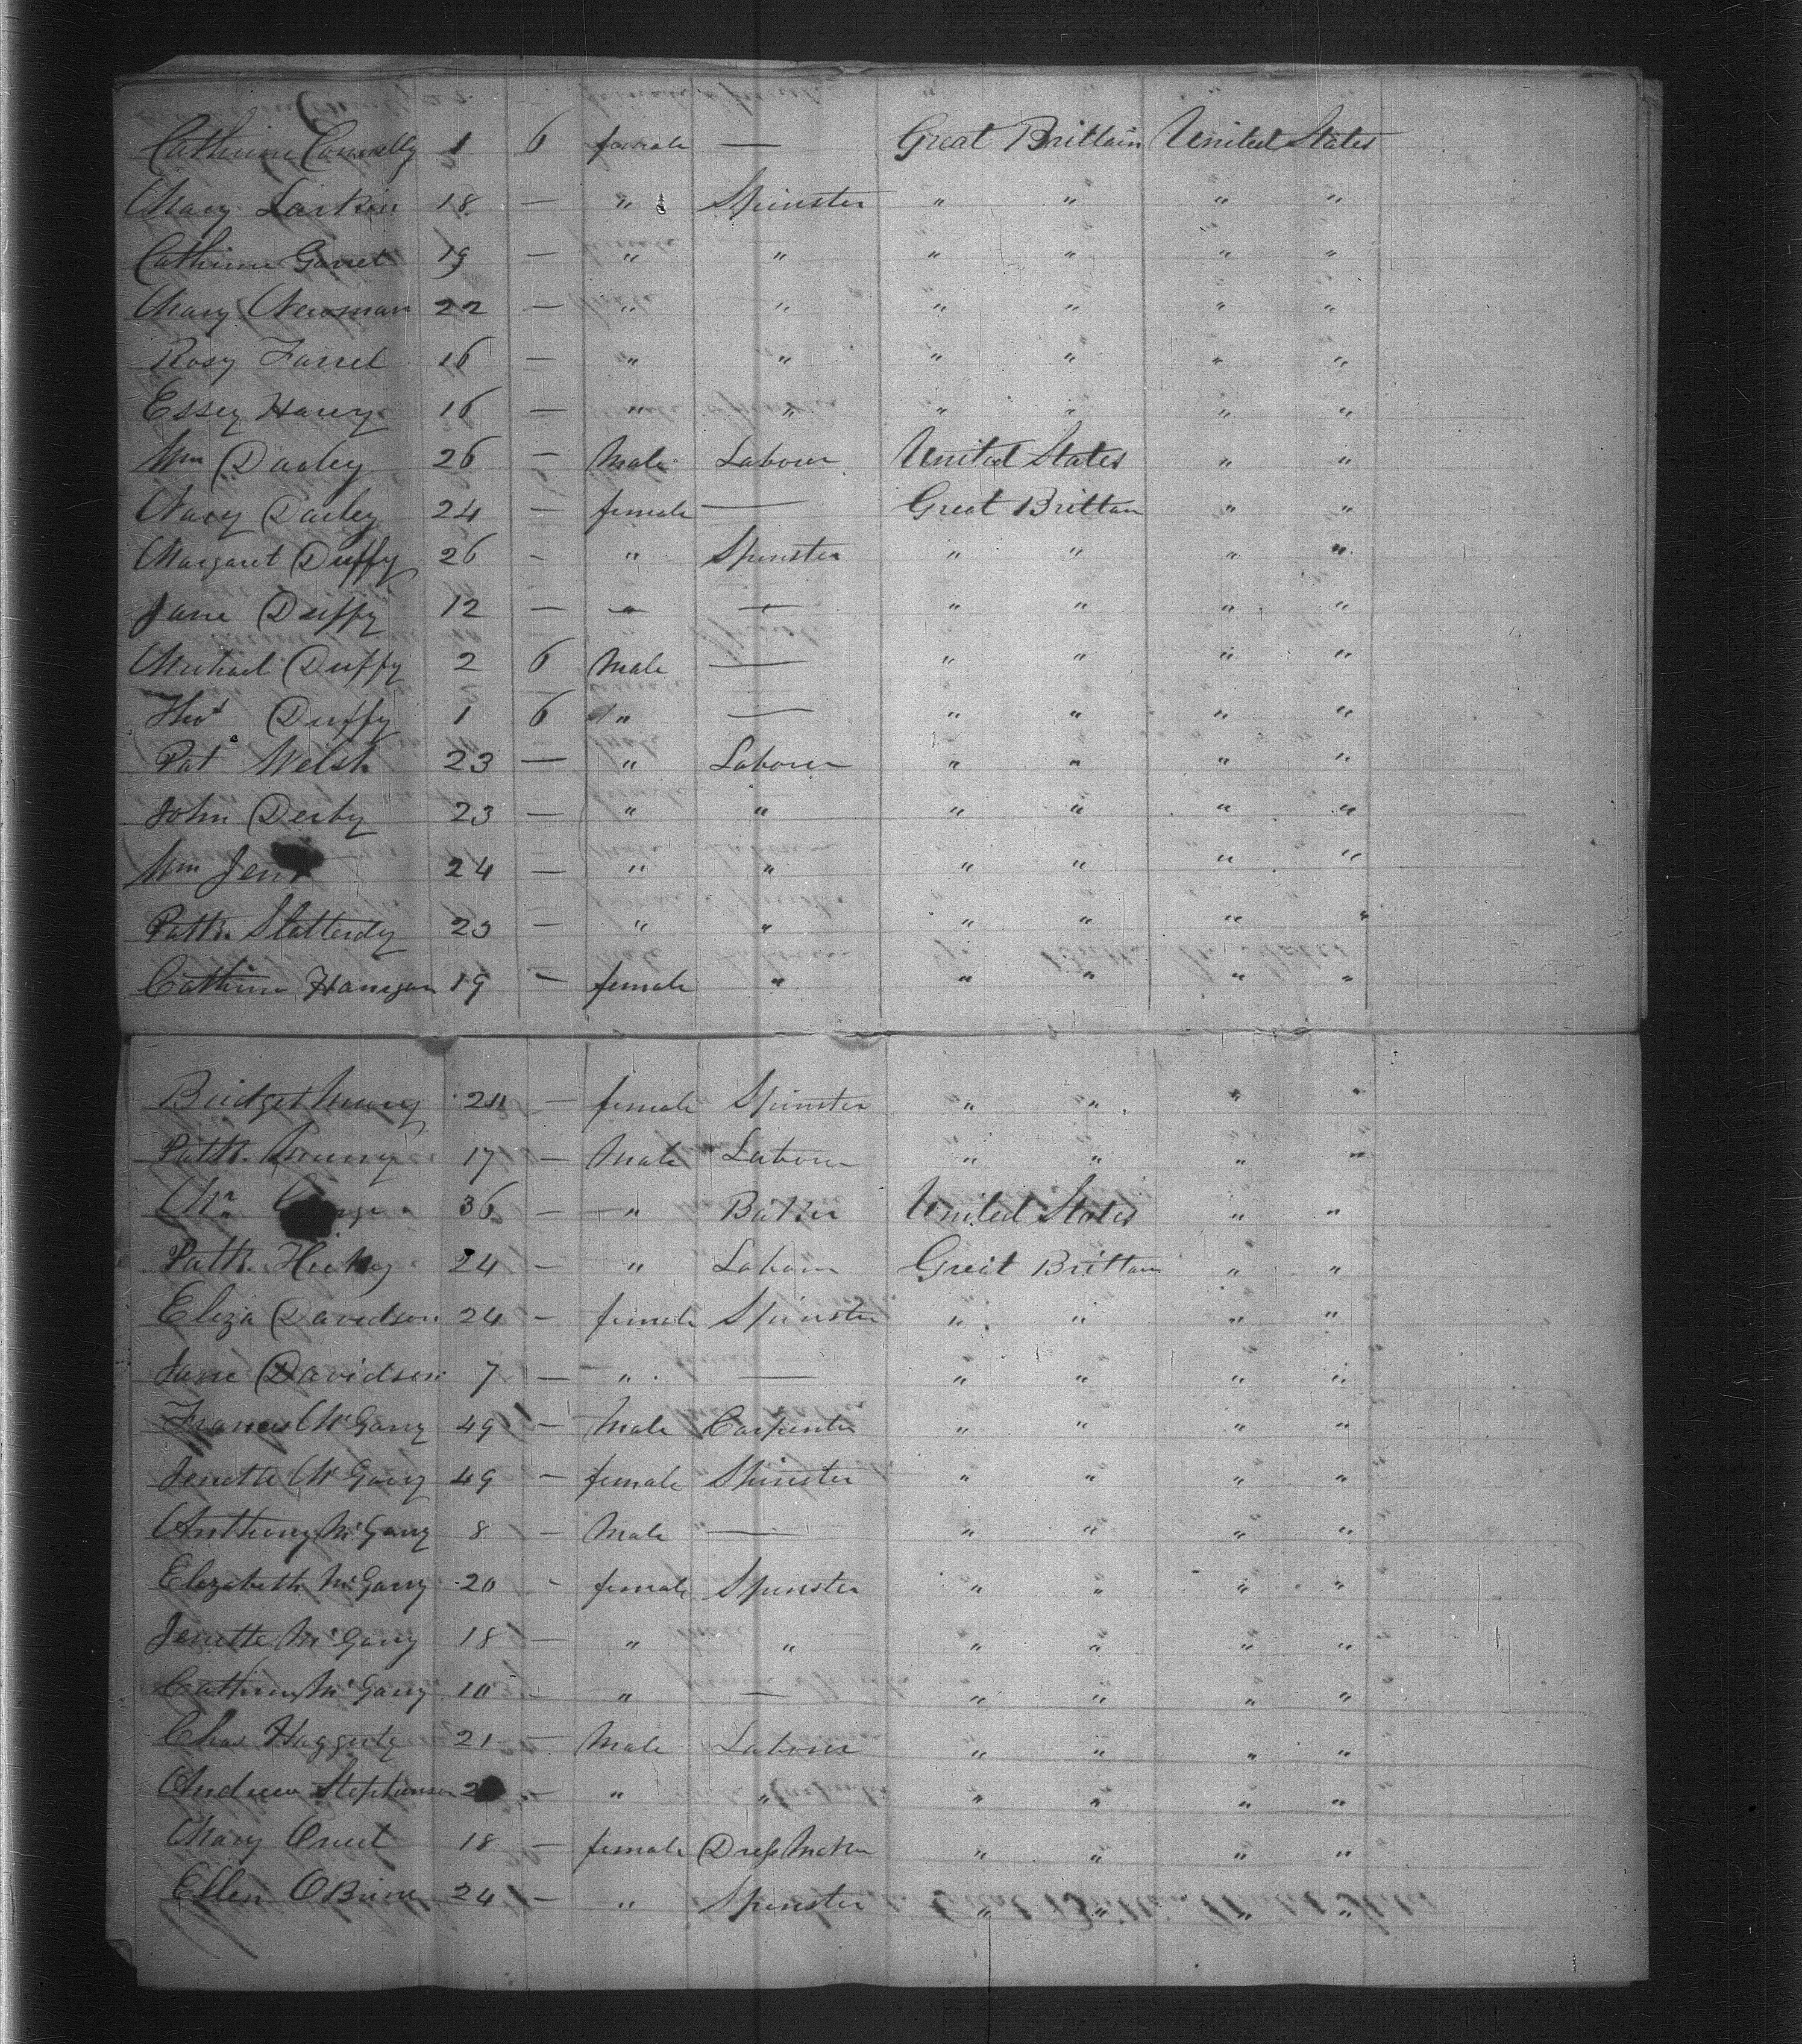 Catherine Connolly 1 6 female — Great Brittain United States
Mary Larkin 18 — " Spinster " " " "
Catherine Garret 19 — " " " " " "
Mary Newman 22 — " " " " " "
Rosy Farrel 16 — " " " " " "
Essey Harey 16 — " " " " " "
Wm Darley 26 — Male Labour United States " "
Nary Darley 24 — female — Great Brittan " "
Margaret Duffy 26 - " Spinster " " " "
Jane Duffy 12 — " — " " " "
Michael Duffy 2 6 Male — " " " "
Thos Duffy 1 6 " — " " " "
Pat Welsh 23 — " Labour " " " "
John Derby 23 — " " " " " "
Wm 24 — " " " " " "
Patk. Slatterdy 23 — " " " " " "
Catherine Hanigan 19 — female " " " " "
Bridget 20 — female Spinster " " " "
Patk. 17 — Male Labour " " " "
36 — " Baker United States " "
Patk. Hickey 24 — " Labour Great Brittan " "
Eliza Davidson 24 — female Spinster " " " "
Jane Davidson 7 — " — " " " "
Frances McGarry 49 — Male Carpenter " " " "
Jenette McGarry 49 — female Spinster " " " "
Anthony McGarry 8 — Male — " " " "
Elizabeth McGarry 20 - female Spinster " " " "
Jenette McGarry 18 — " " " " " "
Catherine McGarry 10 — " — " " " "
Chas Haggerty 21 — Male Labour " " " "
Andrew Stephenson — " " " " " "
Mary 18 — female Dress Maker " " " "
Ellen OBrine 24 — " Spinster " " " "